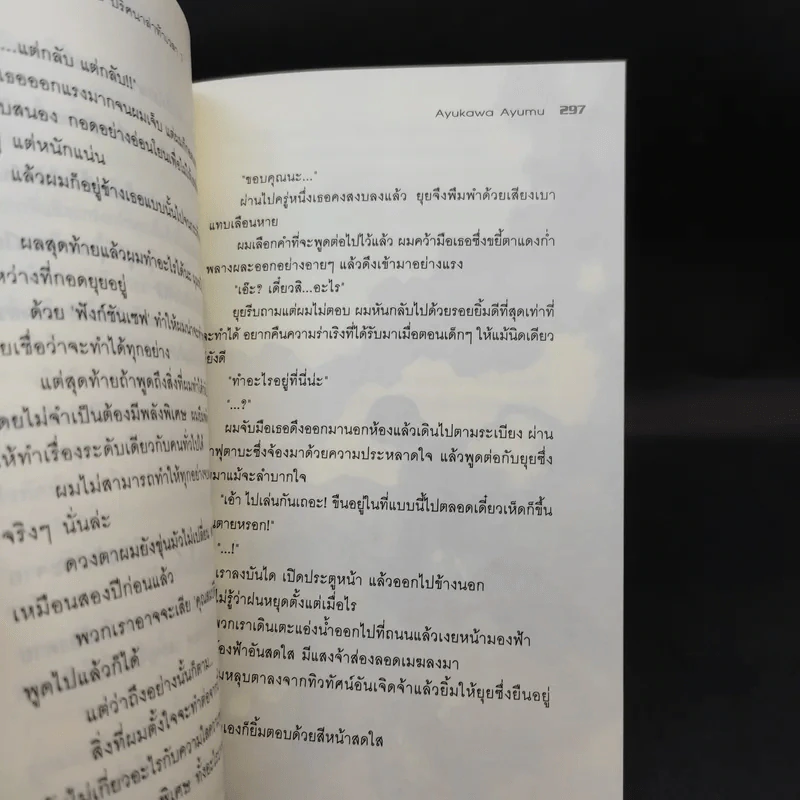 ปริศนาล่าท้าเวลา
...แต่กลับ แต่กลับ!!"
เธอออกแรงมากจนผมเจ็บ
บสนอง กอดอย่างอ่อนโยน
แต่หนักแน่น
แล้วผมก็อยู่ข้างเธอแบบนั้น
ผลสุดท้ายแล้วผมทำอะไรได้นะ
หว่างที่กอดยุยอยู่
ด้วย 'ฟังก์ชันเซฟ' ทำให้ผม
ยเชื่อว่าจะทำได้ทุกอย่าง
แต่สุดท้ายถ้าพูดถึงสิ่งที่ผมทำได้
ดยไม่จำเป็นต้องมีพลังพิเศษ
ห้ทำเรื่องระดับเดียวกับคนทั่วไปได้
ผมไม่สามารถทำให้ทุกอย่าง
จริงๆ นั่นล่ะ
ดวงตาผมยังขุ่นมัวไม่เปลี่ยน
เหมือนสองปีก่อนแล้ว
พวกเราอาจจะเสีย
พูดไปแล้วก็ได้
แต่ว่าถึงอย่างนั้นก็ตาม
สิ่งที่ผมตั้งใจจะทำต่อจาก
ไม่เกี่ยวอะไรกับความ
Ayukawa Ayumu 297
"ขอบคุณนะ..."
ผ่านไปครู่หนึ่งเธอคงสงบลงแล้ว ยุยจึงพึมพำด้วยเสียงเบา
แทบเลือนหาย
ผมเลือกคำที่จะพูดต่อไปไว้แล้ว ผมคว้ามือเธอซึ่งขยี้ตาแดงก่ำ
พลางผละออกอย่างอายๆ แล้วดึงเข้ามาอย่างแรง
"เอ๊ะ? เดี๋ยวสิ...อะไร"
ยุยรีบถามแต่ผมไม่ตอบ ผมหันกลับไปด้วยรอยยิ้มดีที่สุดเท่าที่
จะทำได้ อยากคืนความร่าเริงที่ได้รับมาเมื่อตอนเด็กๆ ให้แม้นิดเดียว
ยังดี
"ทำอะไรอยู่ที่นี่น่ะ"
"...?"
ผมจับมือเธอดึงออกมานอกห้องแล้วเดินไปตามระเบียง ผ่าน
ฟุตาบะซึ่งจ้องมาด้วยความประหลาดใจ แล้วพูดต่อกับยุยซึ่ง
มาแม้จะลำบากใจ
"เอ้า ไปเล่นกันเถอะ! ขืนอยู่ในที่แบบนี้ไปตลอดเดี๋ยวเห็ดก็ขึ้น
นตายหรอก!"
"...!"
เราลงบันได เปิดประตูหน้า แล้วออกไปข้างนอก
ไม่รู้ว่าฝนหยุดตั้งแต่เมื่อไร
พวกเราเดินเตะแอ่งน้ำออกไปที่ถนนแล้วเงยหน้ามองฟ้า
ท้องฟ้าอันสดใส มีแสงจ้าส่องลอดเมฆลงมา
มหลุบตาลงจากทิวทัศน์อันเจิดจ้าแล้วยิ้มให้ยุยซึ่งยืนอยู่
เองก็ยิ้มตอบด้วยสีหน้าสดใส